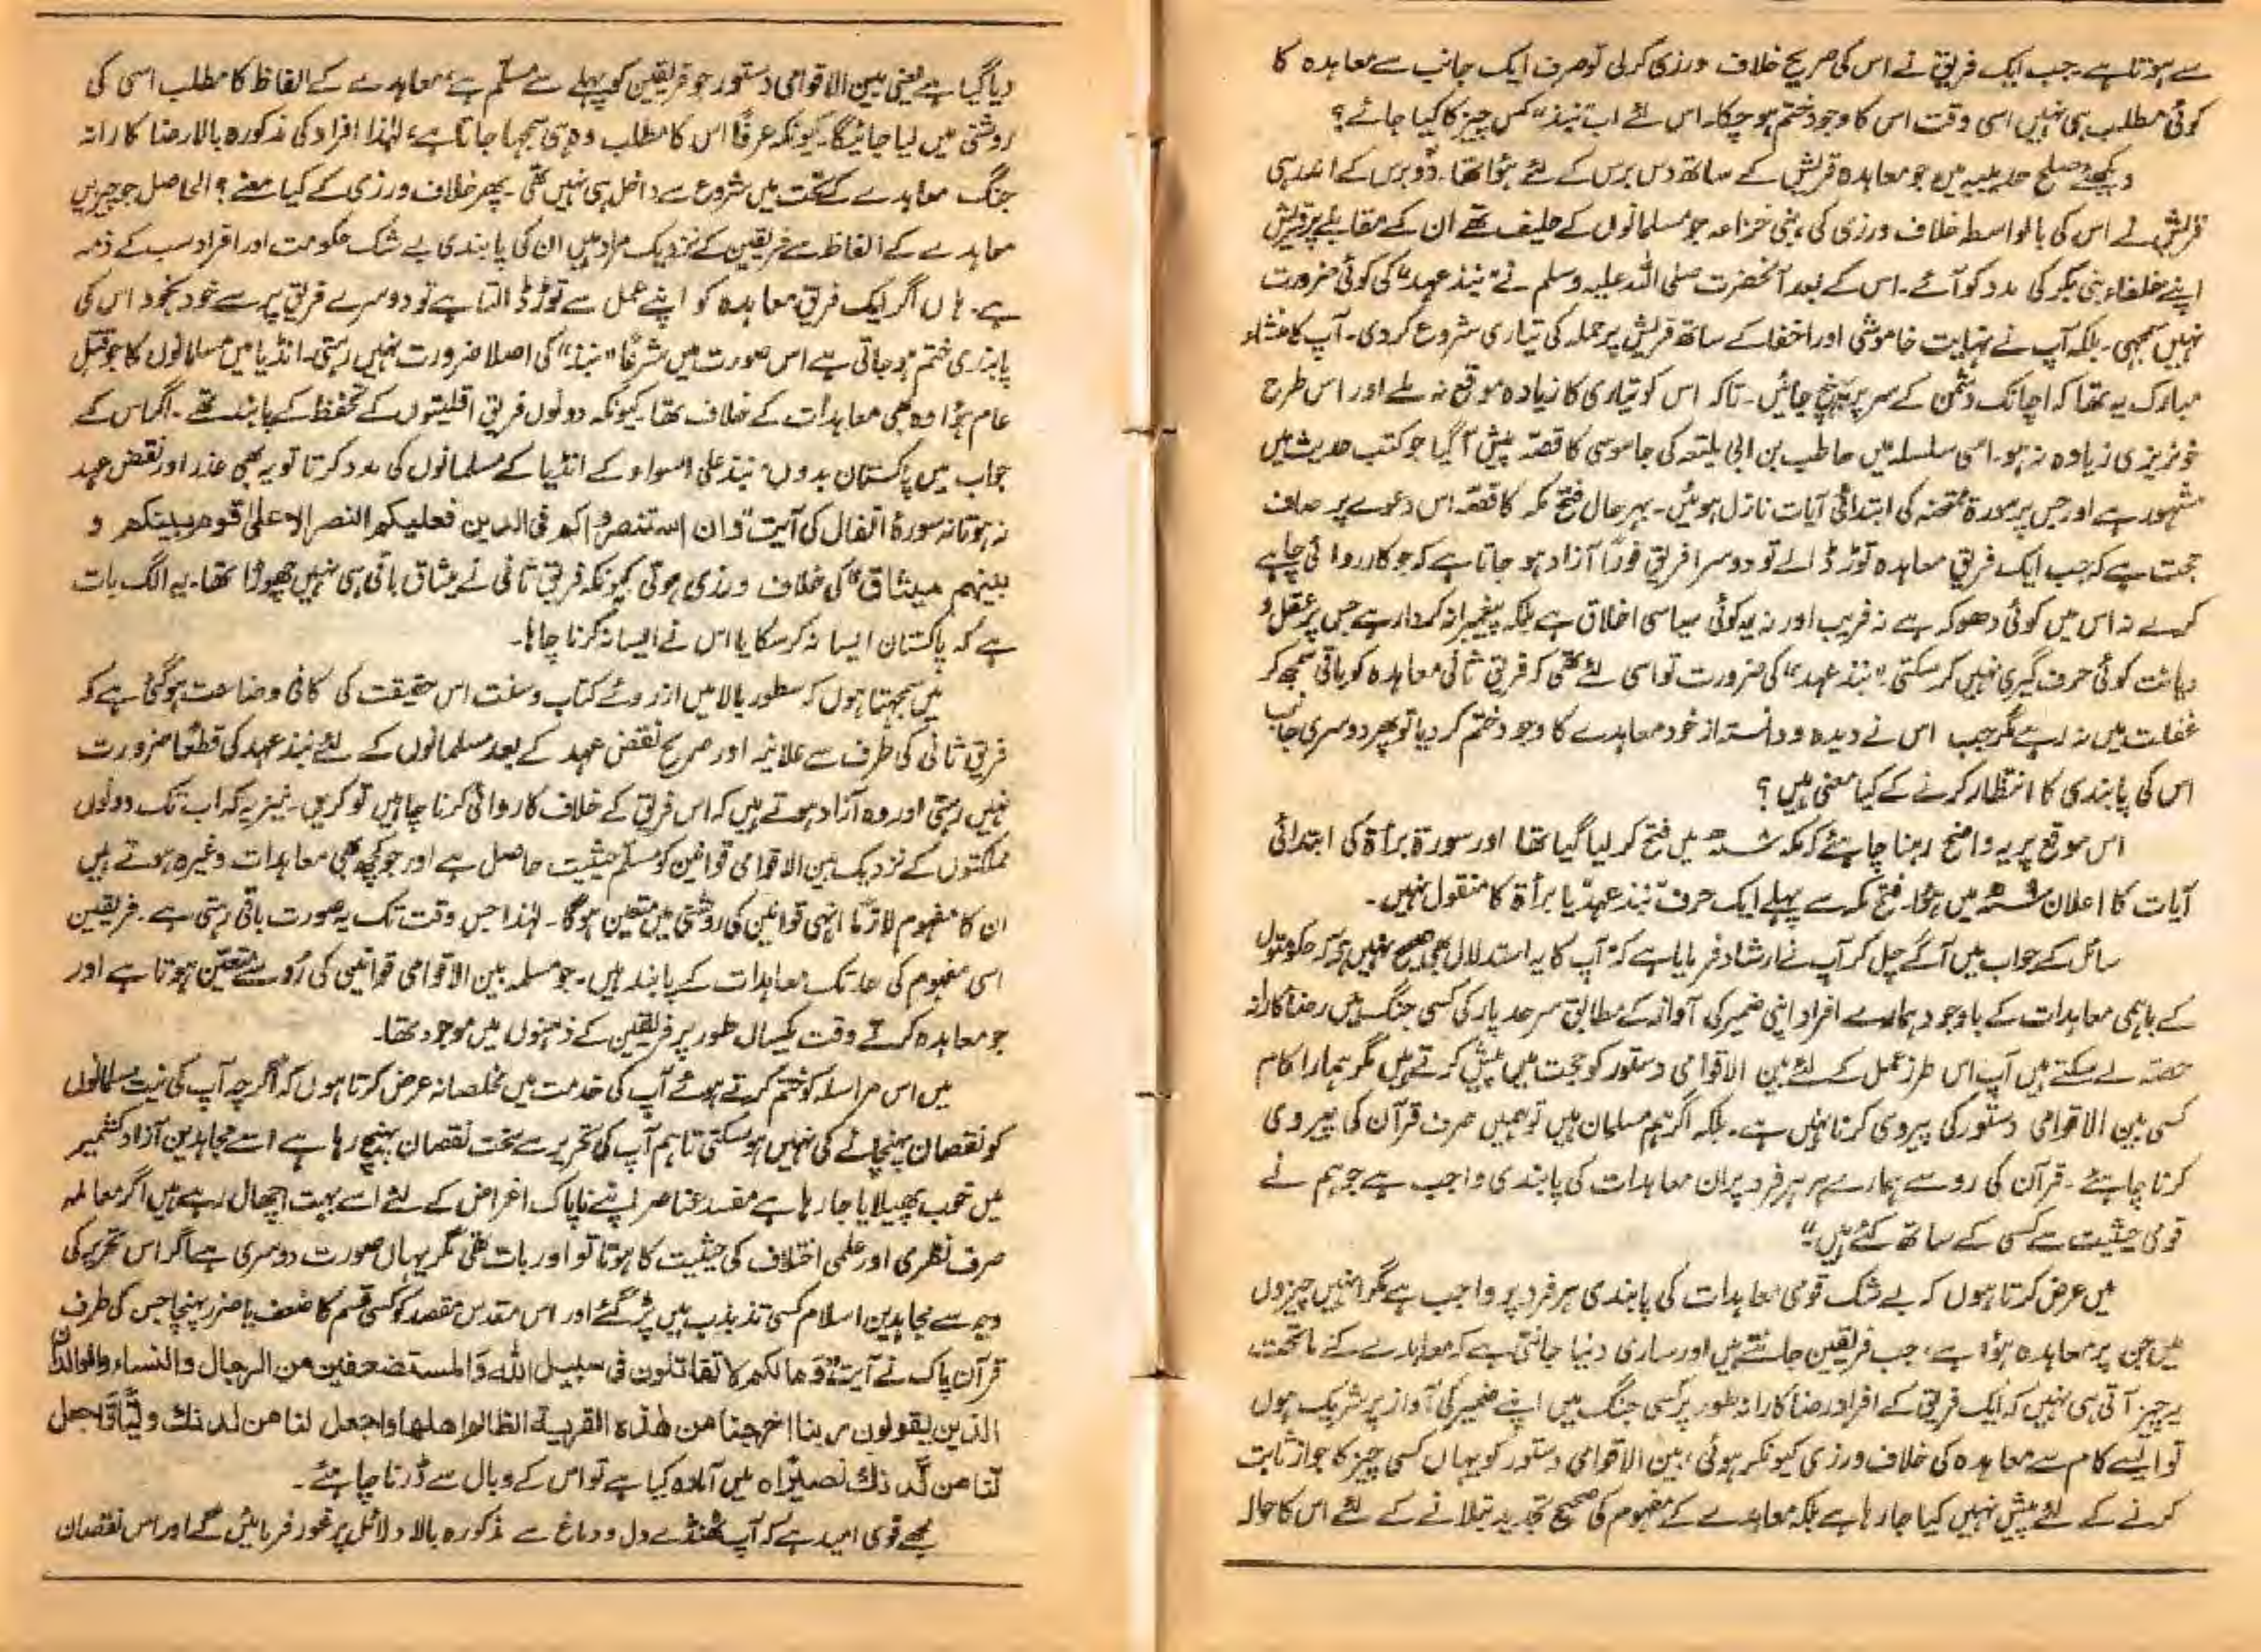 سے ہوتا ہے۔ جب ایک فریق نے اس کی صریح خلاف ورزی کر لی تو صرف ایک جانب سے معاہدہ کا
کوئی مطلب ہی نہیں اسی وقت اس کا وجود ختم ہو چکا۔ اس لئے اب "نبذ" کس چیز کا کیا جائے؟
دیکھئے صلح حدیبیہ میں جو معاہدہ قریش کے ساتھ دس برس کے لئے ہوا تھا۔ دو برس کے اندر ہی
قریش نے اس کی بالواسطہ خلاف ورزی کی، بنی خزاعہ جو مسلمانوں کے حلیف تھے ان کے مقابلے پر قریش
اپنے حلفاء بنی بکر کی مدد کو آئے۔ اس کے بعد آنحضرت صلی اللہ علیہ وسلم نے "نبذ عہد" کی کوئی ضرورت
نہیں سمجھی۔ بلکہ آپ نے نہایت خاموشی اور اخفا کے ساتھ قریش پر حملہ کی تیاری شروع کر دی۔ آپ کا منشاء
مبارک یہ تھا کہ اچانک دشمن کے سر پر پہنچ جائیں۔ تاکہ اس کو تیاری کا زیادہ موقع نہ ملے اور اس طرح
خونریزی زیادہ نہ ہو۔ اسی سلسلہ میں حاطب بن ابی بلتعہ کی جاسوسی کا قصہ پیش آگیا جو کتب حدیث میں
مشہور ہے اور جس پر سورۃ ممتحنہ کی ابتدائی آیات نازل ہوئیں۔ بہرحال فتح مکہ کا قصہ اس دعوے پر صاف
حجت ہے کہ جب ایک فریق معاہدہ توڑ ڈالے تو دوسرا فریق فوراً آزاد ہو جاتا ہے کہ جو کارروائی چاہے
کرے نہ اس میں کوئی دھوکہ ہے نہ فریب اور نہ یہ کوئی سیاسی اخلاق ہے بلکہ پیغمبرانہ کردار ہے جس پر عقل و
دیانت کوئی حرف گیری نہیں کر سکتی "نبذ عہد" کی ضرورت تو اسی لئے تھی کہ فریق ثانی معاہدہ کو باقی سمجھ کر
غفلت میں نہ رہے مگر جب اس نے دیدہ و دانستہ از خود معاہدے کا وجود ختم کر دیا تو پھر دوسری جانب
اس کی پابندی کا انتظار کرنے کے کیا معنی ہیں؟
اس موقع پر یہ واضح رہنا چاہئے کہ مکہ ۸ھ میں فتح کر لیا گیا تھا اور سورۃ برأۃ کی ابتدائی
آیات کا اعلان ۹ھ میں ہوا۔ فتح مکہ سے پہلے ایک حرف "نبذ عہد" یا برأۃ کا منقول نہیں۔
سائل کے جواب میں آگے چل کر آپ نے ارشاد فرمایا ہے کہ "آپ کا یہ استدلال بھی صحیح نہیں ہے کہ حکومتوں
کے باہمی معاہدات کے باوجود ہمارے افراد اپنی ضمیر کی آواز کے مطابق سرحد پار کی کسی جنگ میں رضاکارانہ
حصہ لے سکتے ہیں آپ اس طرز عمل کے لئے بین الاقوامی دستور کو حجت میں پیش کرتے ہیں مگر ہمارا کام
کسی بین الاقوامی دستور کی پیروی کرنا نہیں ہے۔ بلکہ اگر ہم مسلمان ہیں تو ہمیں صرف قرآن کی پیروی
کرنا چاہئے۔ قرآن کی رو سے ہمارے ہر ہر فرد پر ان معاہدات کی پابندی واجب ہے جو ہم نے
قومی حیثیت سے کسی کے ساتھ کئے ہیں"
میں عرض کرتا ہوں کہ بے شک قومی معاہدات کی پابندی ہر فرد پر واجب ہے مگر انہیں چیزوں
میں جن پر معاہدہ ہوا ہے، جب فریقین جانتے ہیں اور ساری دنیا جانتی ہے کہ معاہدے کے ماتحت
یہ چیز آتی ہی نہیں کہ ایک فریق کے افراد رضاکارانہ طور پر کسی جنگ میں اپنے ضمیر کی آواز پر شریک ہوں
تو ایسے کام سے معاہدہ کی خلاف ورزی کیونکر ہوئی، بین الاقوامی دستور کو یہاں کسی چیز کا جواز ثابت
کرنے کے لئے پیش نہیں کیا جا رہا ہے بلکہ معاہدے کے مفہوم کی صحیح تحدید بتلانے کے لئے اس کا حوالہ
دیا گیا ہے یعنی بین الاقوامی دستور جو فریقین کو پہلے سے مسلّم ہے، معاہدے کے الفاظ کا مطلب اسی کی
روشنی میں لیا جائیگا۔ کیونکہ عرفاً اس کا مطلب وہ ہی سمجھا جاتا ہے، لہٰذا افراد کی مذکورہ بالا رضاکارانہ
جنگ معاہدے کے تحت میں شروع سے داخل ہی نہیں تھی۔ پھر خلاف ورزی کے کیا معنے؟ الحاصل جو چیزیں
معاہدے کے الفاظ سے فریقین کے نزدیک مراد ہیں ان کی پابندی بے شک حکومت اور افراد سب کے ذمہ
ہے۔ ہاں اگر ایک فریق معاہدہ کو اپنے عمل سے توڑ ڈالتا ہے تو دوسرے فریق پر سے خود بخود اس کی
پابندی ختم ہو جاتی ہے اس صورت میں شرعاً "نبذ" کی اصلا ضرورت نہیں رہتی۔ انڈیا میں مسلمانوں کا جو قتل
عام ہوا وہ بھی معاہدات کے خلاف تھا۔ کیونکہ دونوں فریق اقلیتوں کے تحفظ کے پابند تھے۔ اگر اس کے
جواب میں پاکستان بدوں "نبذ علی السواء" کے انڈیا کے مسلمانوں کی مدد کرتا تو یہ بھی غدر اور نقض عہد
نہ ہوتا نہ سورۃ انفال کی آیت "وان استنصروکم فی الدین فعلیکم النصر الا علی قوم بینکم و
بینہم میثاق" کی خلاف ورزی ہوتی کیونکہ فریق ثانی نے میثاق باقی ہی نہیں چھوڑا تھا۔ یہ الگ بات
ہے کہ پاکستان ایسا نہ کر سکا یا اس نے ایسا نہ کرنا چاہا۔
میں سمجھتا ہوں کہ سطور بالا میں از روئے کتاب و سنت اس حقیقت کی کافی وضاحت ہو گئی ہے کہ
فریق ثانی کی طرف سے علانیہ اور صریح نقض عہد کے بعد مسلمانوں کے لئے نبذ عہد کی قطعاً ضرورت
نہیں رہتی اور وہ آزاد ہوتے ہیں کہ اس فریق کے خلاف کاروائی کرنا چاہیں تو کریں۔ نیز یہ کہ اب تک دونوں
مملکتوں کے نزدیک بین الاقوامی قوانین کو مسلّم حیثیت حاصل ہے اور جو کچھ بھی معاہدات وغیرہ ہوتے ہیں
ان کا مفہوم لازماً انہی قوانین کی روشنی میں متعین ہوگا۔ لہٰذا جس وقت تک یہ صورت باقی رہتی ہے۔ فریقین
اسی مفہوم کی حد تک معاہدات کے پابند ہیں۔ جو مسلمہ بین الاقوامی قوانین کی رُو سے متعین ہوتا ہے اور
جو معاہدہ کرتے وقت یکساں طور پر فریقین کے ذہنوں میں موجود تھا۔
میں اس مراسلہ کو ختم کرتے ہوئے آپ کی خدمت میں مخلصانہ عرض کرتا ہوں کہ اگرچہ آپ کی نیت مسلمانوں
کو نقصان پہنچانے کی نہیں ہو سکتی تاہم آپ کی تحریر سے سخت نقصان پہنچ رہا ہے اسے مجاہدین آزاد کشمیر
میں خوب پھیلایا جا رہا ہے مفسد عناصر اپنے ناپاک اغراض کے لئے اسے بہت اچھال رہے ہیں اگر معاملہ
صرف نظری اور علمی اختلاف کی حیثیت کا ہوتا تو اور بات تھی مگر یہاں صورت دوسری ہے اگر اس تحریر کی
وجہ سے مجاہدین اسلام کسی تذبذب میں پڑ گئے اور اس مقدس مقصد کو کسی قسم کا ضعف یا ضرر پہنچا جس کی طرف
قرآن پاک نے آیت "وَمالکم لا تقاتلون فی سبیل اللہ وَالمستضعفین من الرجال والنساء والولدان
الذین یقولون ربنا اخرجنا من ھٰذہ القریۃ الظالم اھلھا واجعل لنا من لدنک ولیًّا وَّاجعل
لَّنا من لَّدنک نصیرًا" میں آمادہ کیا ہے تو اس کے وبال سے ڈرنا چاہئے۔
مجھے قوی امید ہے کہ آپ ٹھنڈے دل و دماغ سے مذکورہ بالا دلائل پر غور فرمائیں گے اور اس نقصان